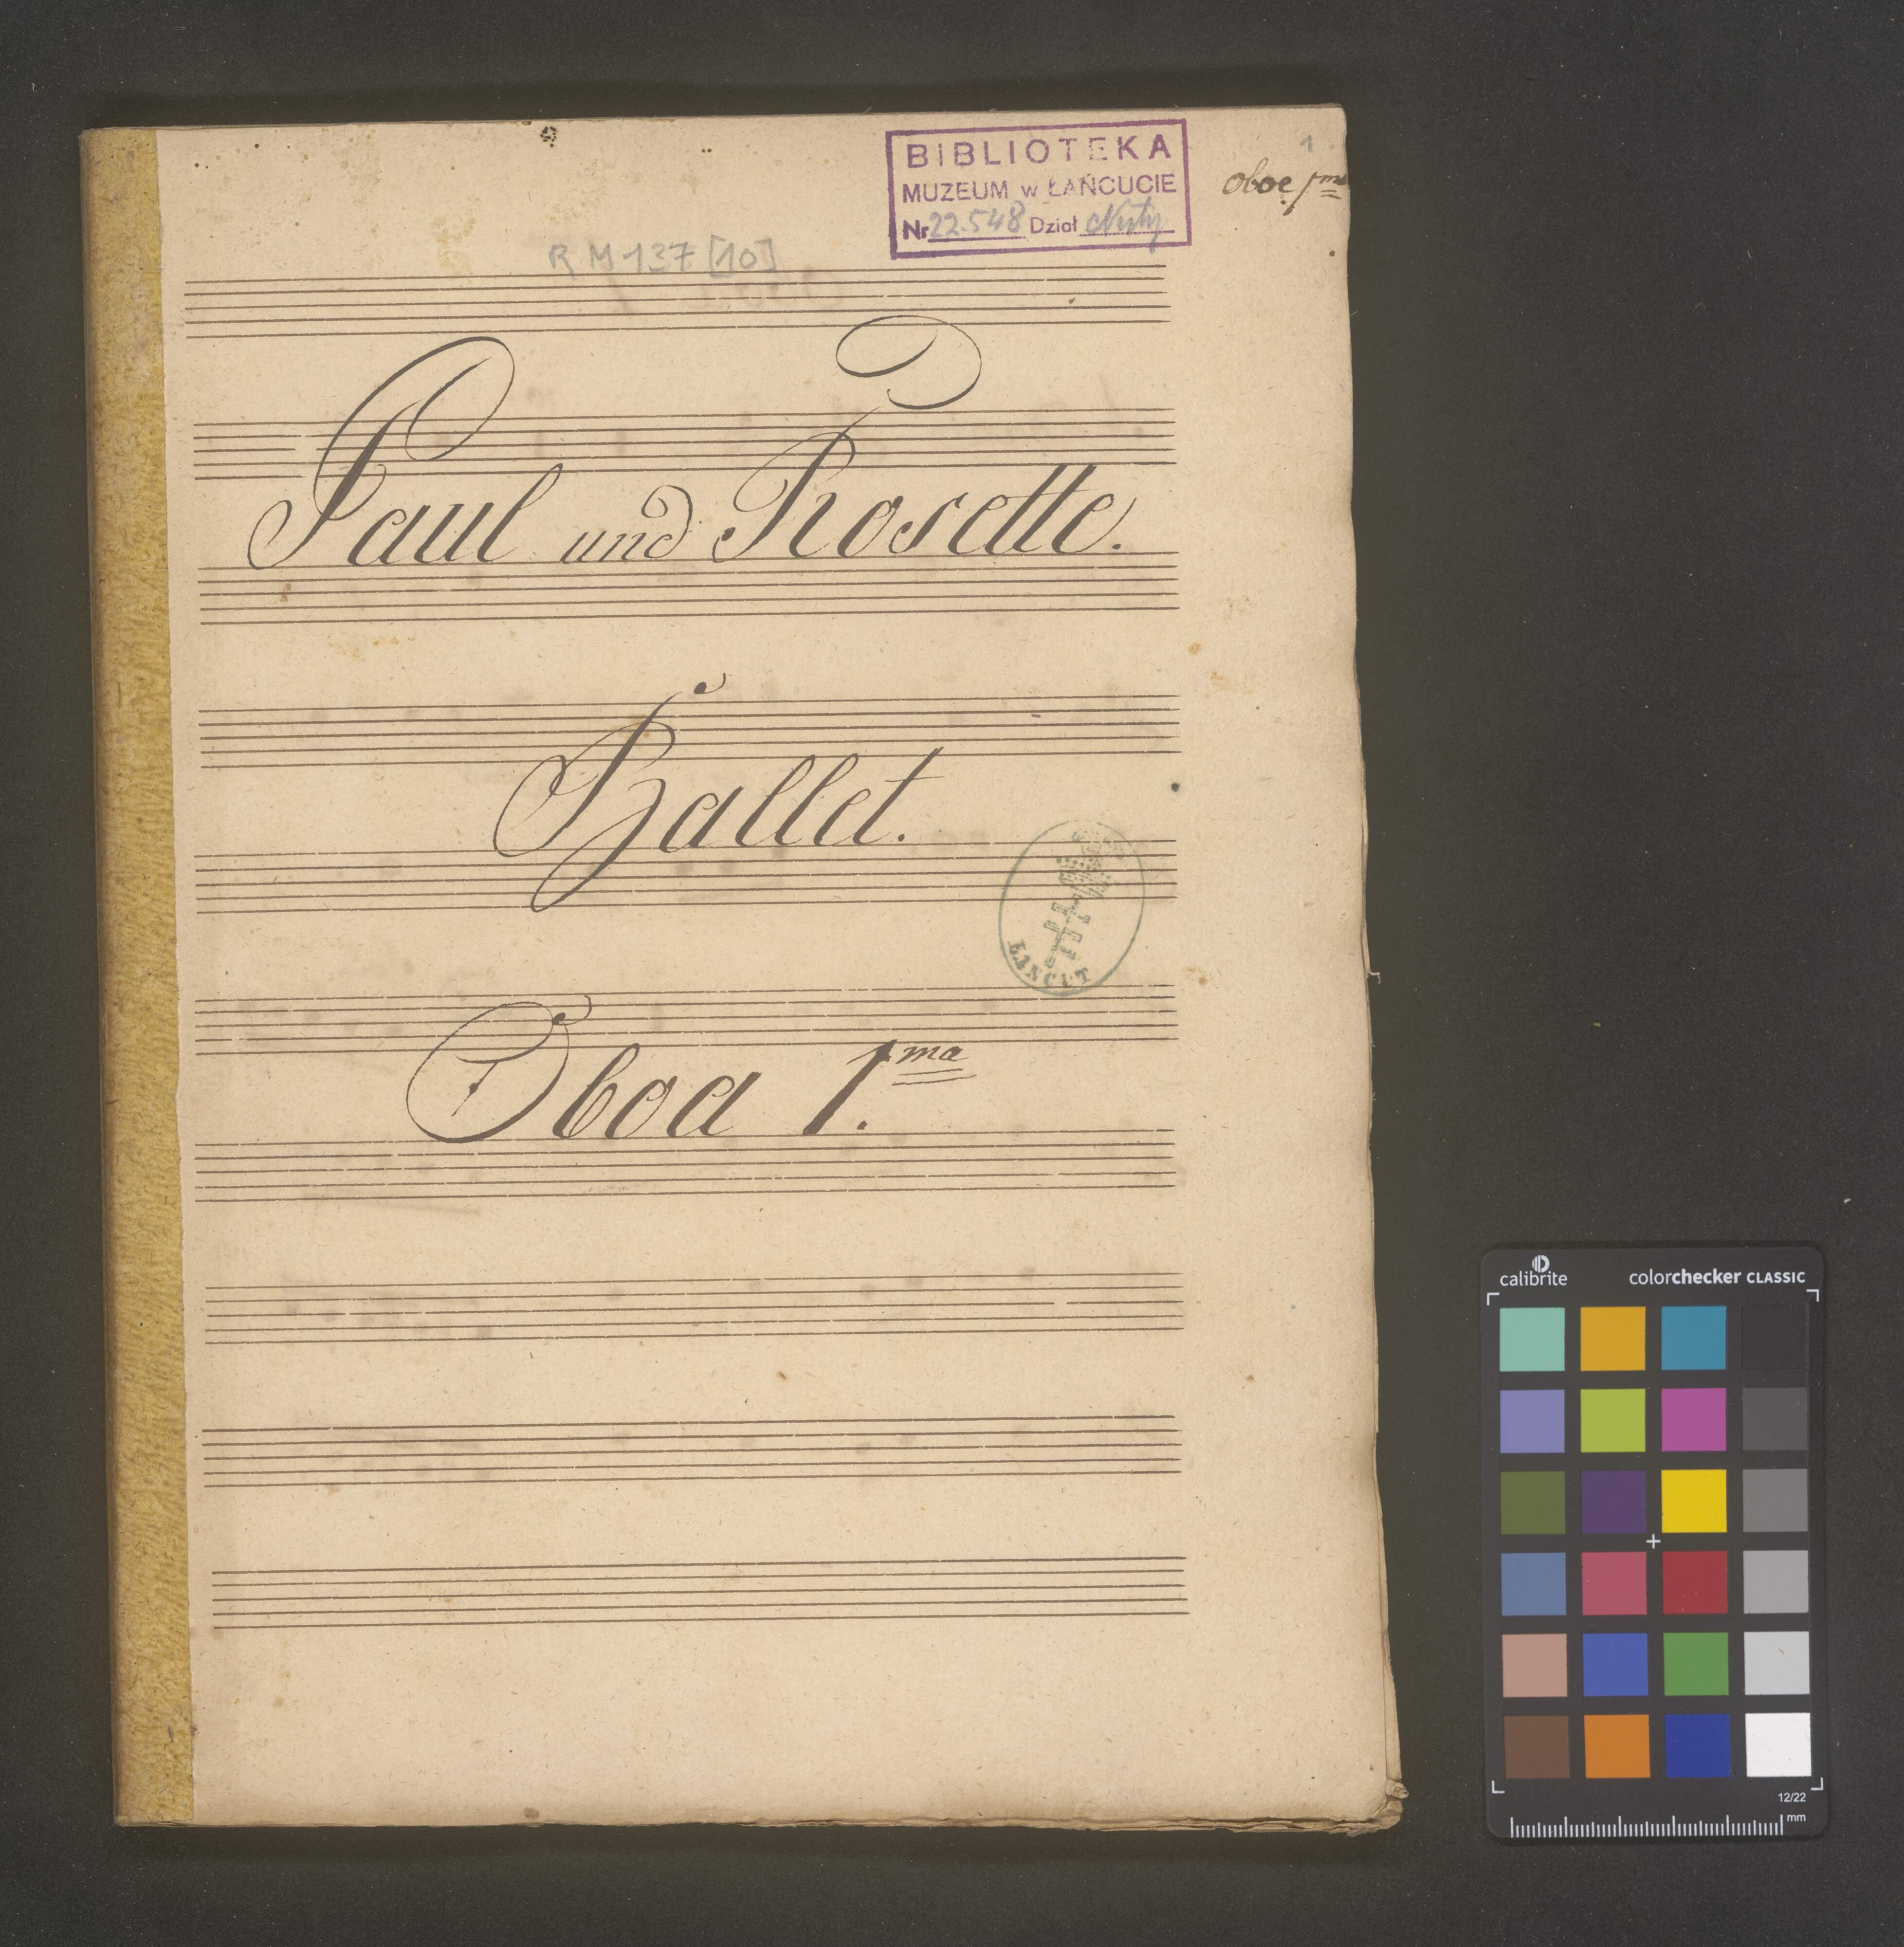 1
BIBLIOTEKA
MUZEUM w ŁAŃCUCIE
Nr 22.548 Dział Nuty
oboe 1ma
RM 137 [10]
Paul und Rosette.
Ballet.
ŁAŃCUT
Oboa 1.ma
calibrite colorchecker CLASSIC
12/22
mm